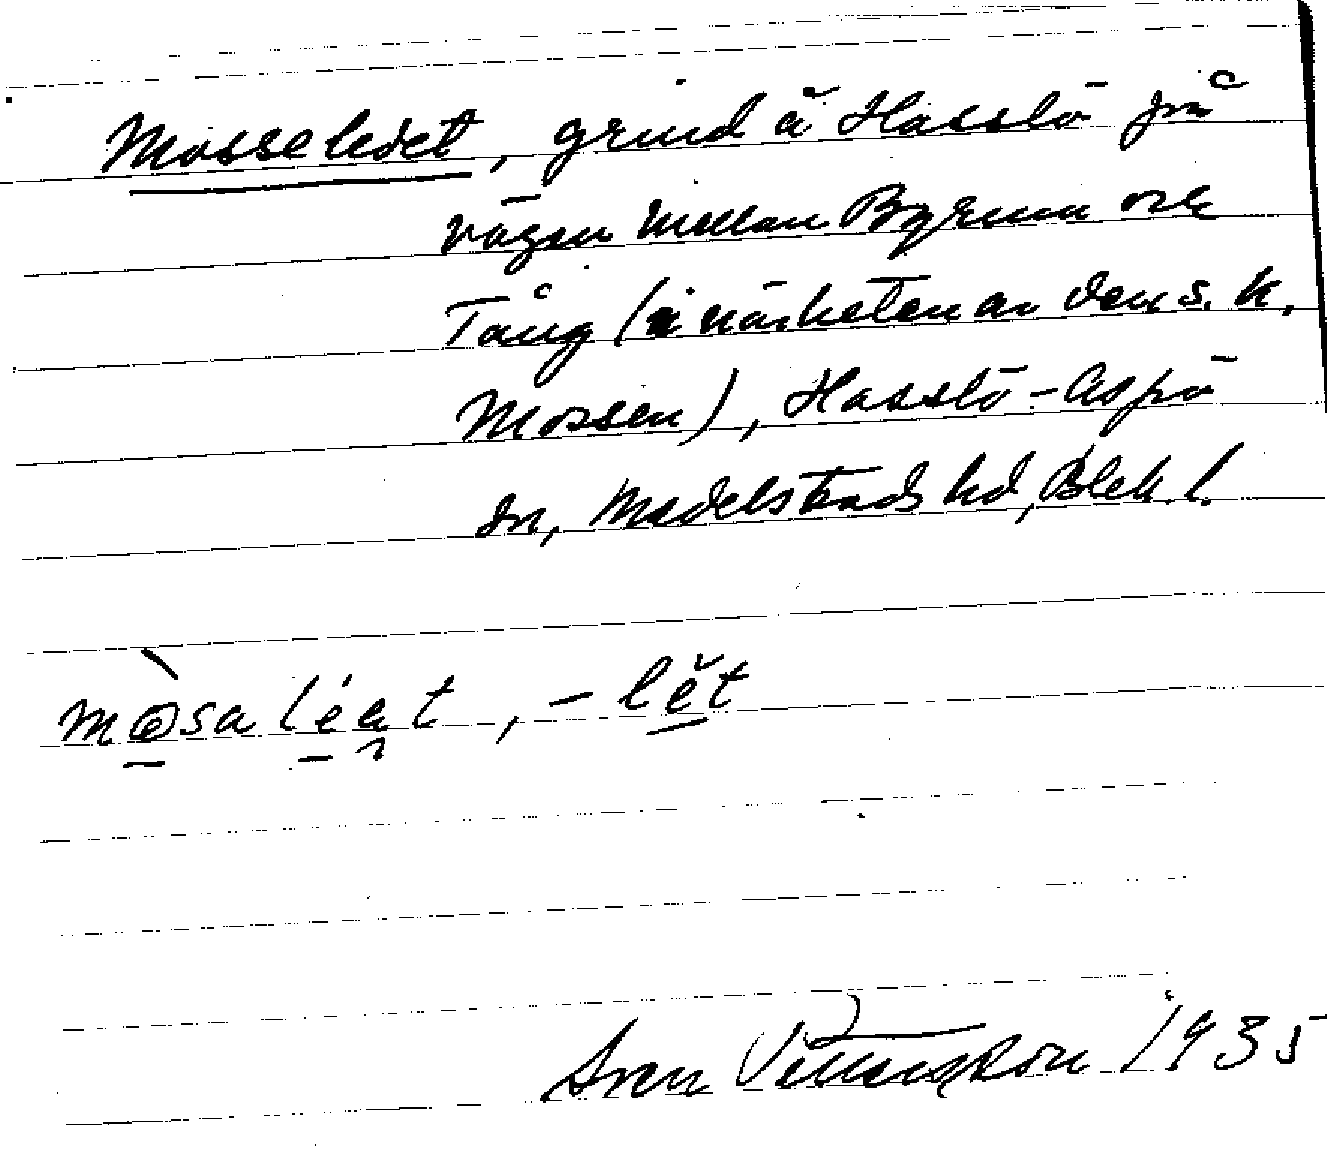 Mosseledet, grind å Hasslö på
vägen mellan Byrum och
Tång (i närheten av den s. k.
Mossen), Hasslö-Aspö
sn, Medelstads hd, Blek. l.
mòsa léat, -lět
Sven 1935